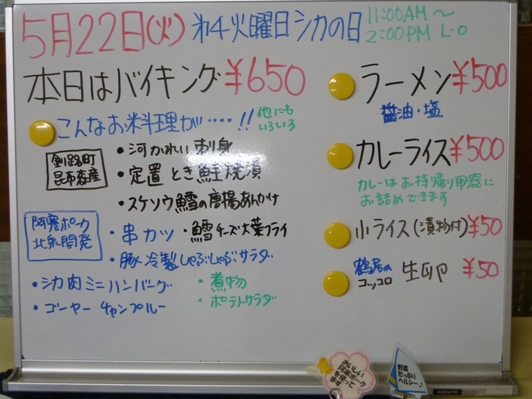 5月22日(火) 第4火曜日シカの日
11:00AM〜
2:00PM L·O
本日はバイキング¥650
こんなお米料理が・・・・!!
他にも
いろいろ
釧路町
昆布森産
・河かれい刺身
・定置 とき鮭焼漬
・スケソウ鱈の唐揚あんかけ
阿寒ポーク
北気開発
・串カツ ・鱈チーズ大葉フライ
・豚冷製しゃぶしゃぶサラダ
・シカ肉ミニハンバーグ
・煮物
・ゴーヤーチャンプルー
・ポテトサラダ
ラーメン¥500
醤油・塩
カレーライス¥500
カレーはお持帰り用器に
お詰めできます
小ライス(漬物付)¥50
鶴居の
コッコロ
生卵 ¥50
野菜
たっぷり
ヘルシー♪